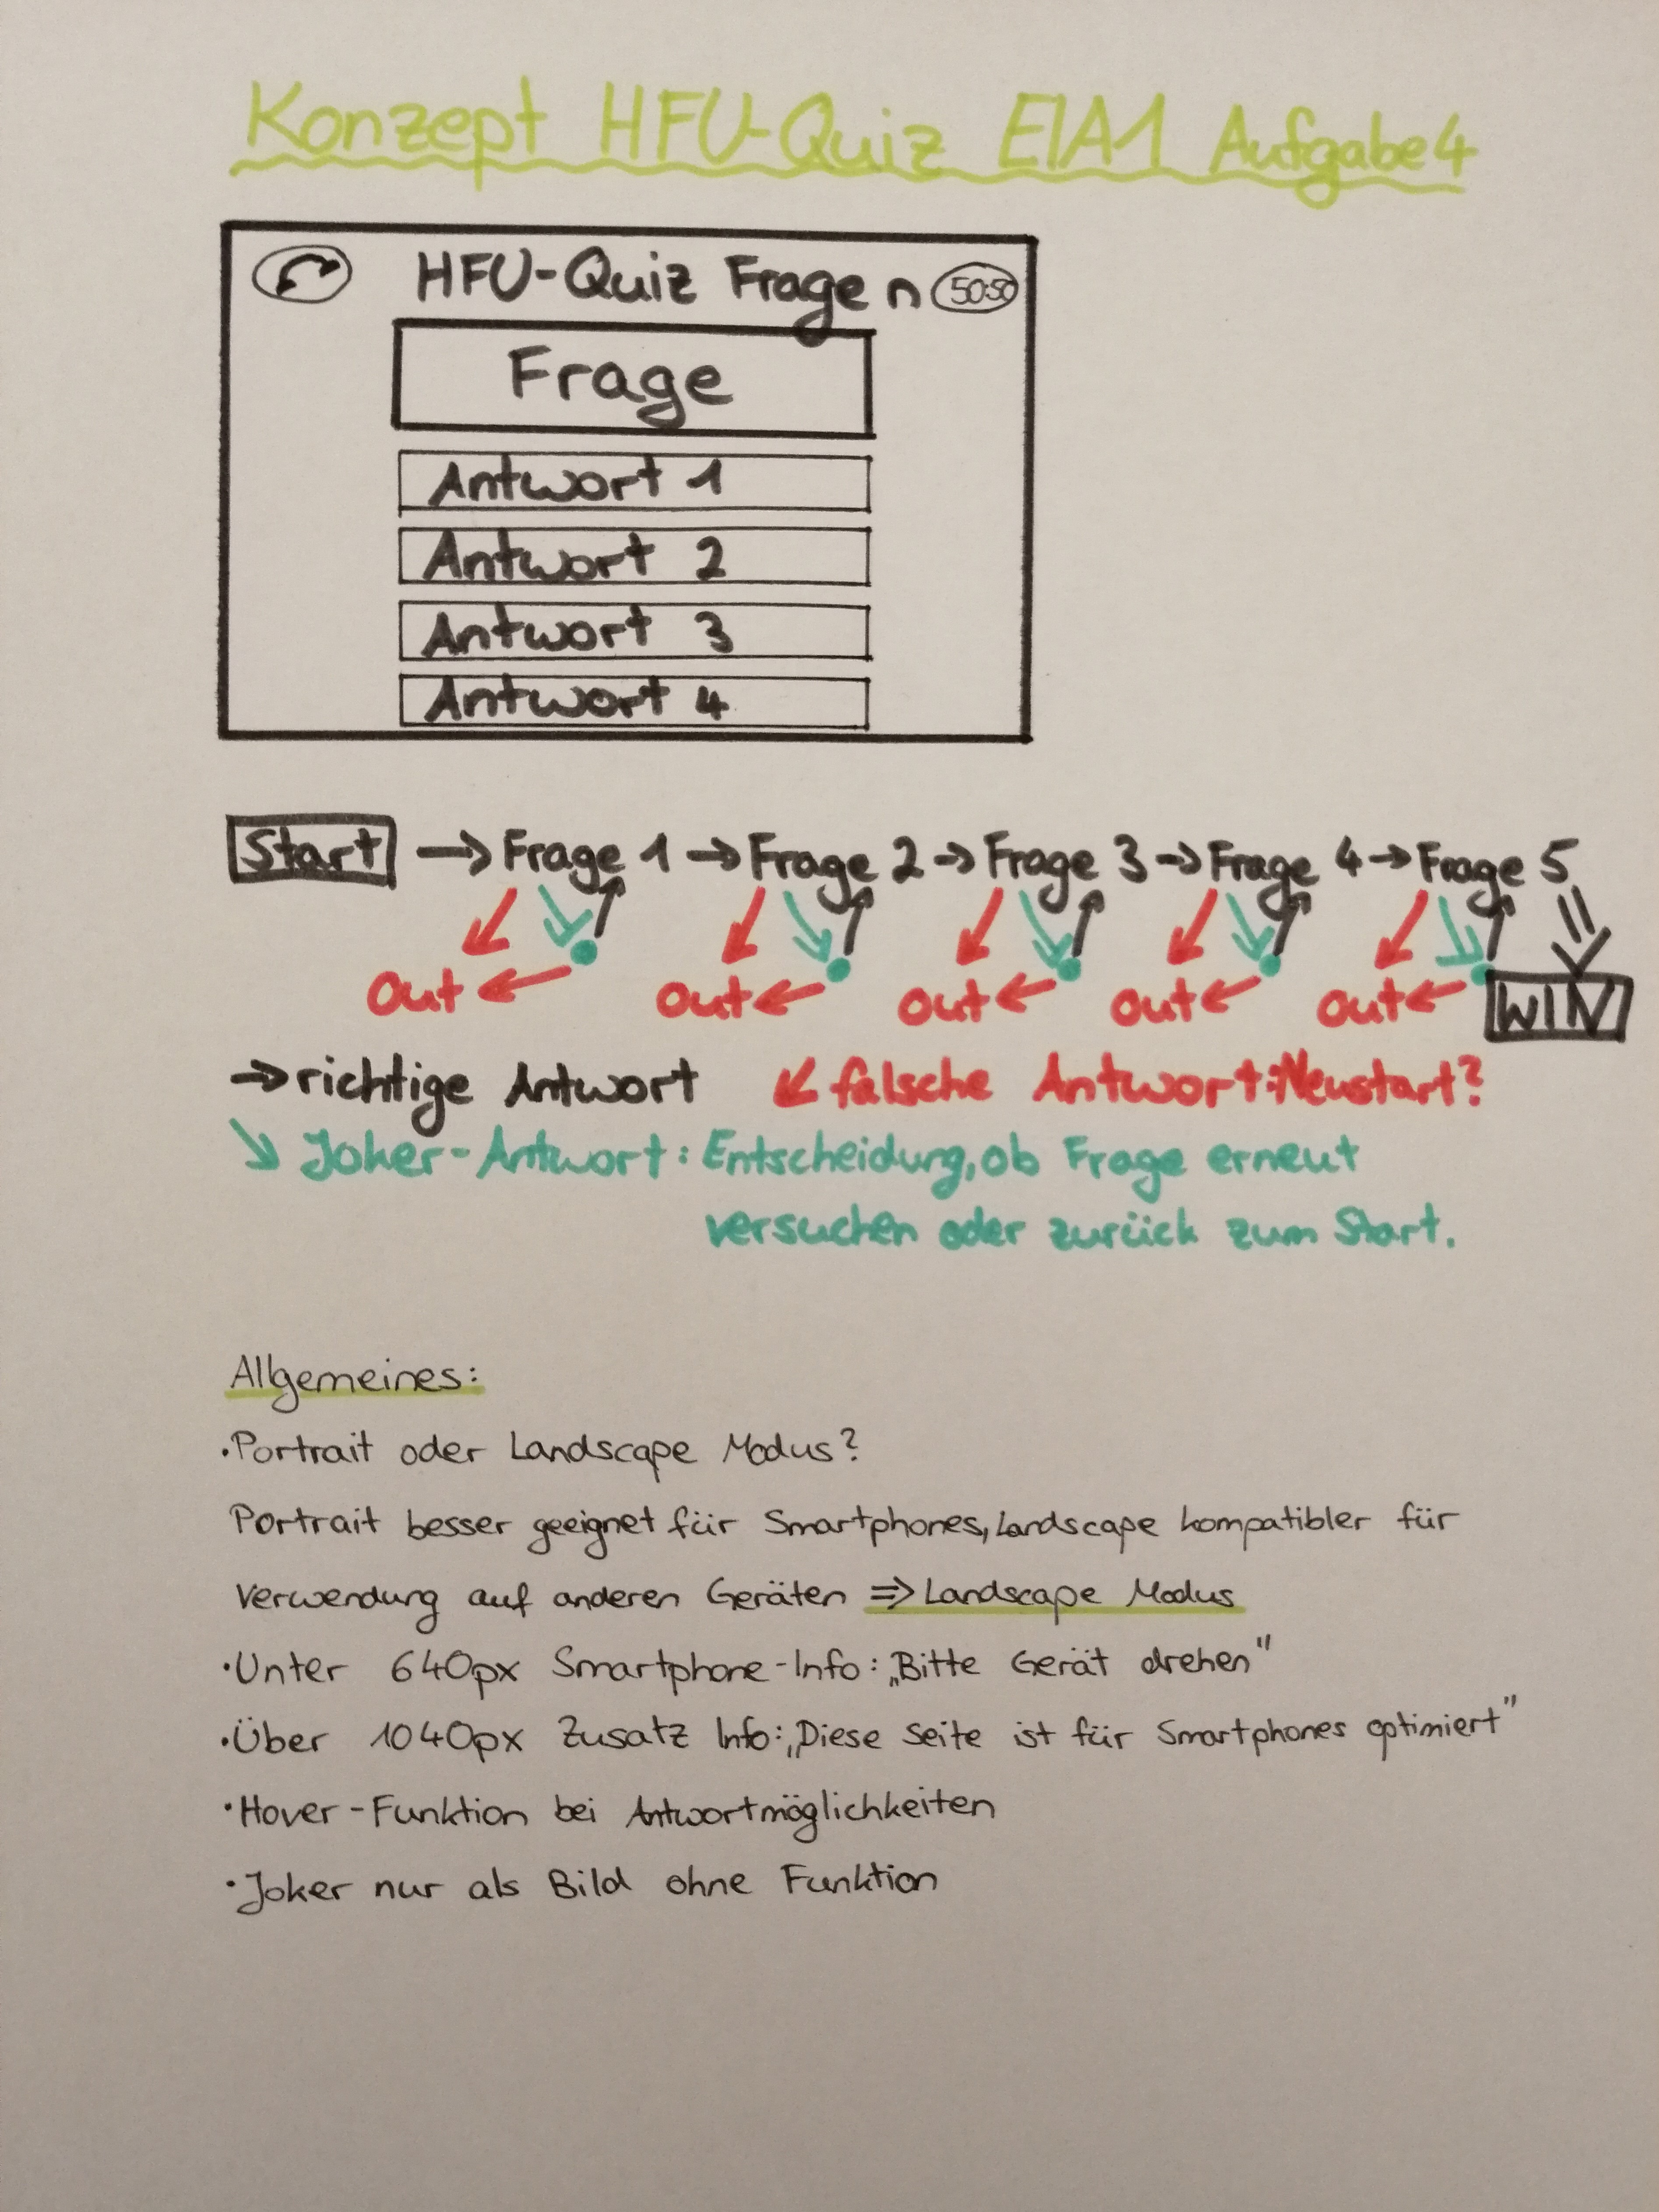 Konzept HFU-Quiz EIA1 Aufgabe 4
HFU-Quiz Frage n 50:50
Frage
Antwort 1
Antwort 2
Antwort 3
Antwort 4
Start → Frage 1 → Frage 2 → Frage 3 → Frage 4 → Frage 5
Out out out out out WIN
→ richtige Antwort ↙ falsche Antwort: Neustart?
↘ Joker-Antwort: Entscheidung, ob Frage erneut
versuchen oder zurück zum Start.
Allgemeines:
• Portrait oder Landscape Modus?
Portrait besser geeignet für Smartphones, Landscape kompatibler für
Verwendung auf anderen Geräten ⇒ Landscape Modus
• Unter 640px Smartphone-Info: „Bitte Gerät drehen"
• Über 1040px Zusatz Info: „Diese Seite ist für Smartphones optimiert"
• Hover-Funktion bei Antwortmöglichkeiten
• Joker nur als Bild ohne Funktion